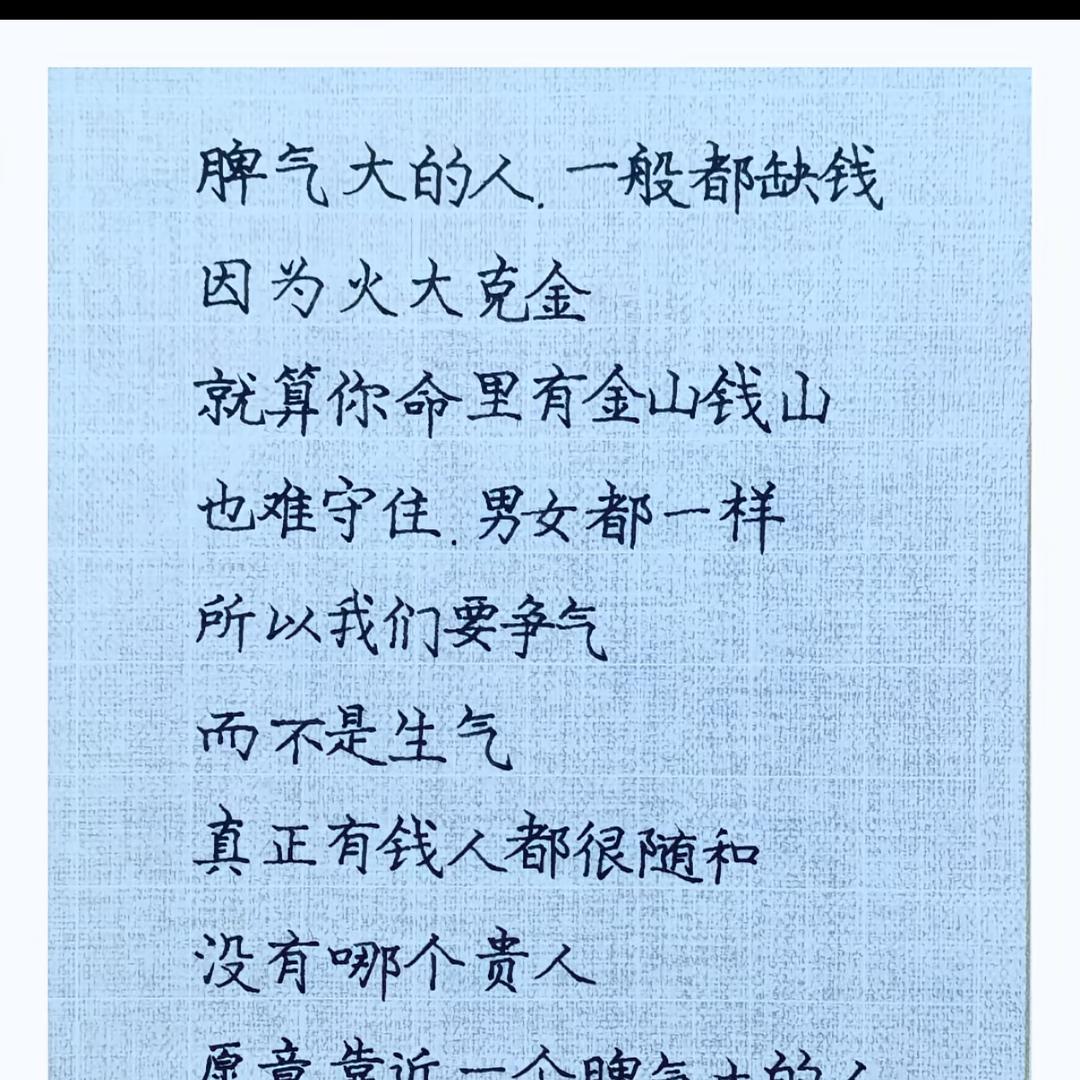 脾气大的人.一般都缺钱
因为火大克金
就算你命里有金山钱山
也难守住.男女都一样
所以我们要争气
而不是生气
真正有钱人都很随和
没有哪个贵人
愿意靠近一个脾气大的人